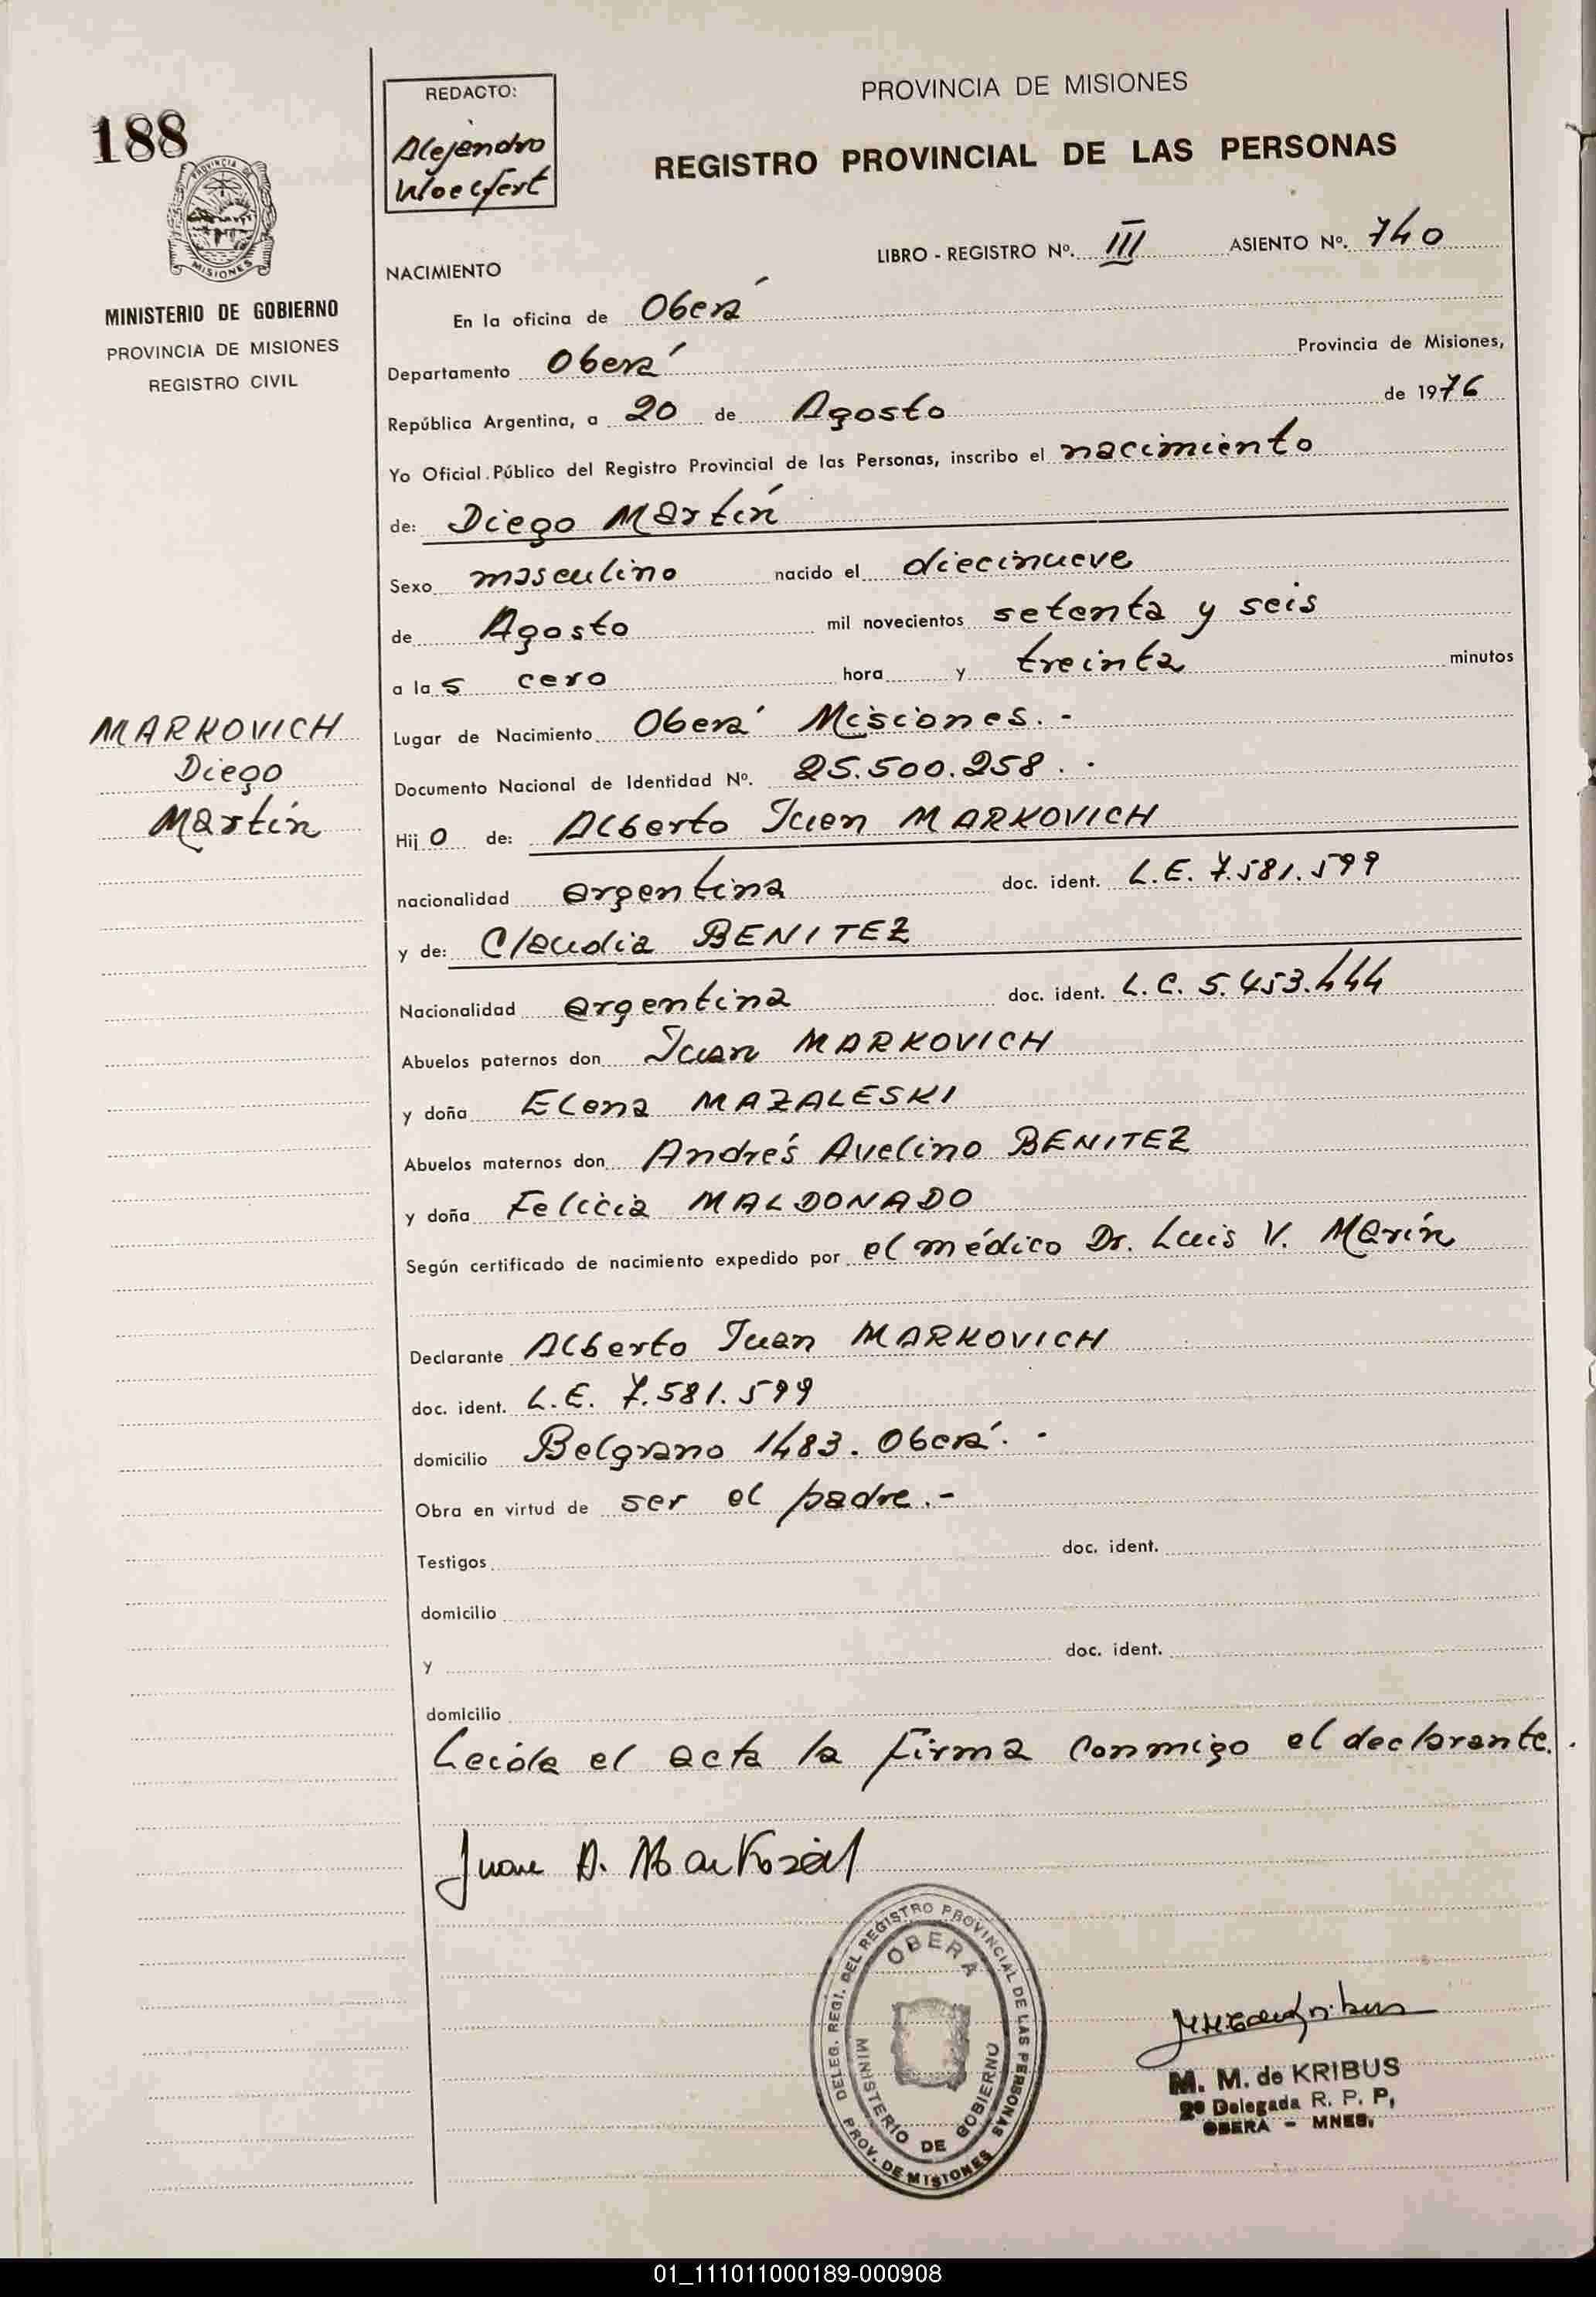 188
REDACTO:
Alejandro
Woelfert
PROVINCIA DE MISIONES
REGISTRO PROVINCIAL DE LAS PERSONAS
PROVINCIA DE
MISIONES
MINISTERIO DE GOBIERNO
PROVINCIA DE MISIONES
REGISTRO CIVIL
LIBRO - REGISTRO Nº. III ASIENTO Nº. 740
NACIMIENTO
En la oficina de Oberá
Departamento Oberá Provincia de Misiones,
República Argentina, a 20 de Agosto de 1976
Yo Oficial Público del Registro Provincial de las Personas, inscribo el nacimiento
de: Diego Martín
Sexo masculino nacido el diecinueve
de Agosto mil novecientos setenta y seis
a las cero hora y treinta minutos
MARKOVICH
Diego
Martín
Lugar de Nacimiento Oberá Misiones. -
Documento Nacional de Identidad Nº. 25.500.258. -
Hijo de: Alberto Juan MARKOVICH
nacionalidad argentina doc. ident. L.E. 7.581.599
y de: Claudia BENITEZ
Nacionalidad argentina doc. ident. L.C. 5.453.444
Abuelos paternos don Juan MARKOVICH
y doña Elena MAZALESKI
Abuelos maternos don Andrés Avelino BENITEZ
y doña Felicia MALDONADO
Según certificado de nacimiento expedido por el médico Dr. Luis V. Marín
Declarante Alberto Juan MARKOVICH
doc. ident. L.E. 7.581.599
domicilio Belgrano 1483. Oberá. -
Obra en virtud de ser el padre. -
Testigos doc. ident.
domicilio
y doc. ident.
domicilio
Leída el acta la firma conmigo el declarante. .
Juan A.
DELEG. REGI. DEL REGISTRO PROVINCIAL DE LAS PERSONAS
OBERA
MINISTERIO DE GOBIERNO
PROV. DE MISIONES
M. M. de KRIBUS
2º Delegada R. P. P,
OBERA - MNES,
01_111011000189-000908